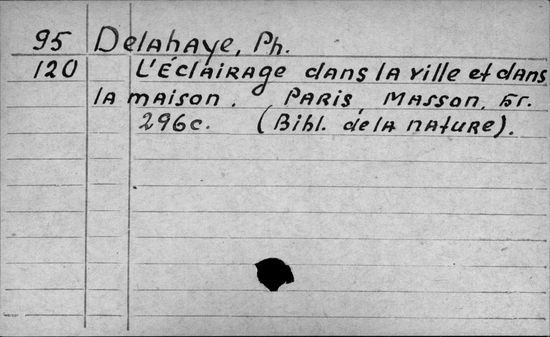 95 Delahaye, Ph.
120 L'Éclairage dans la ville et dans
la maison. Paris, Masson, бг.
296c. (Bibl. de la nature).